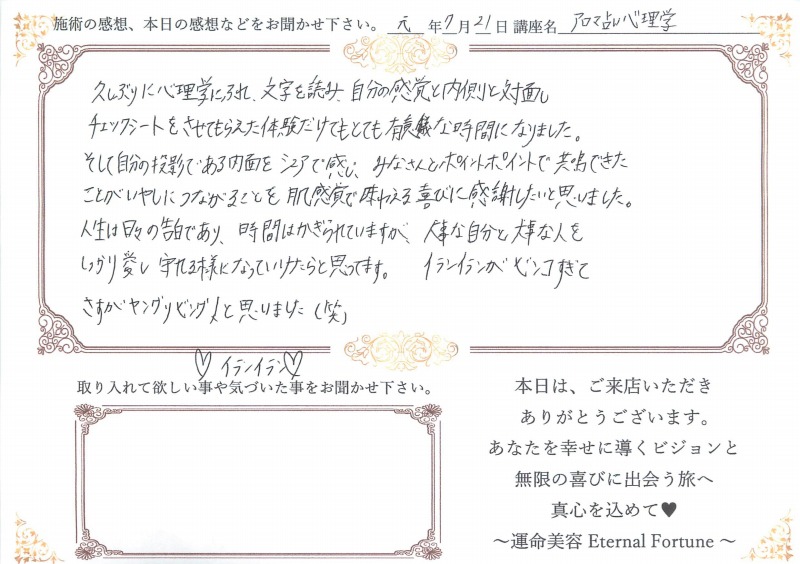 施術の感想、本日の感想などをお聞かせ下さい。元年7月21日 講座名 アロマ占い心理学
久しぶりに心理学にふれ、文字を読み、自分の感覚と内側と対面し
チェックシートをさせてもらえた体験だけでもとても有意義な時間になりました。
そして自分の投影である内面をシェアで感じ、みなさんとポイントポイントで共鳴できた
ことがいやしにつながることを肌感覚で味わえる喜びに感謝したいと思いました。
人生は日々の告白であり、時間はかぎられていますが、大事な自分と大事な人を
しっかり愛し守れる様になっていけたらと思ってます。 イランイランがドンコすぎて
さすがヤングリビング人と思いました(笑)
♡イランイラン♡
取り入れて欲しい事や気づいた事をお聞かせ下さい。
本日は、ご来店いただき
ありがとうございます。
あなたを幸せに導くビジョンと
無限の喜びに出会う旅へ
真心を込めて♥
～運命美容 Eternal Fortune ～